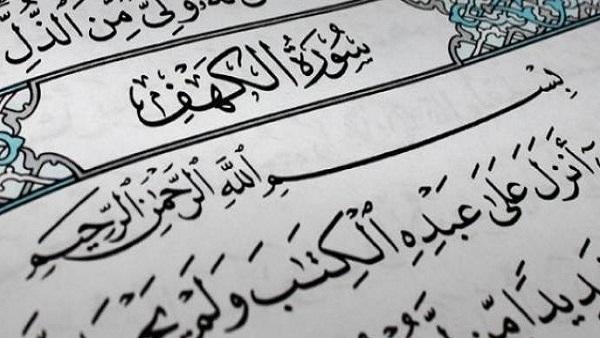 وَلِيٌّ مِّنَ ٱلذُّلِّ
سُورَةُ ٱلْكَهْفِ
بِسْمِ ٱللَّهِ ٱلرَّحْمَٰنِ ٱلرَّحِيمِ
أَنزَلَ عَلَىٰ عَبْدِهِ ٱلْكِتَٰبَ وَلَمْ
مِّن